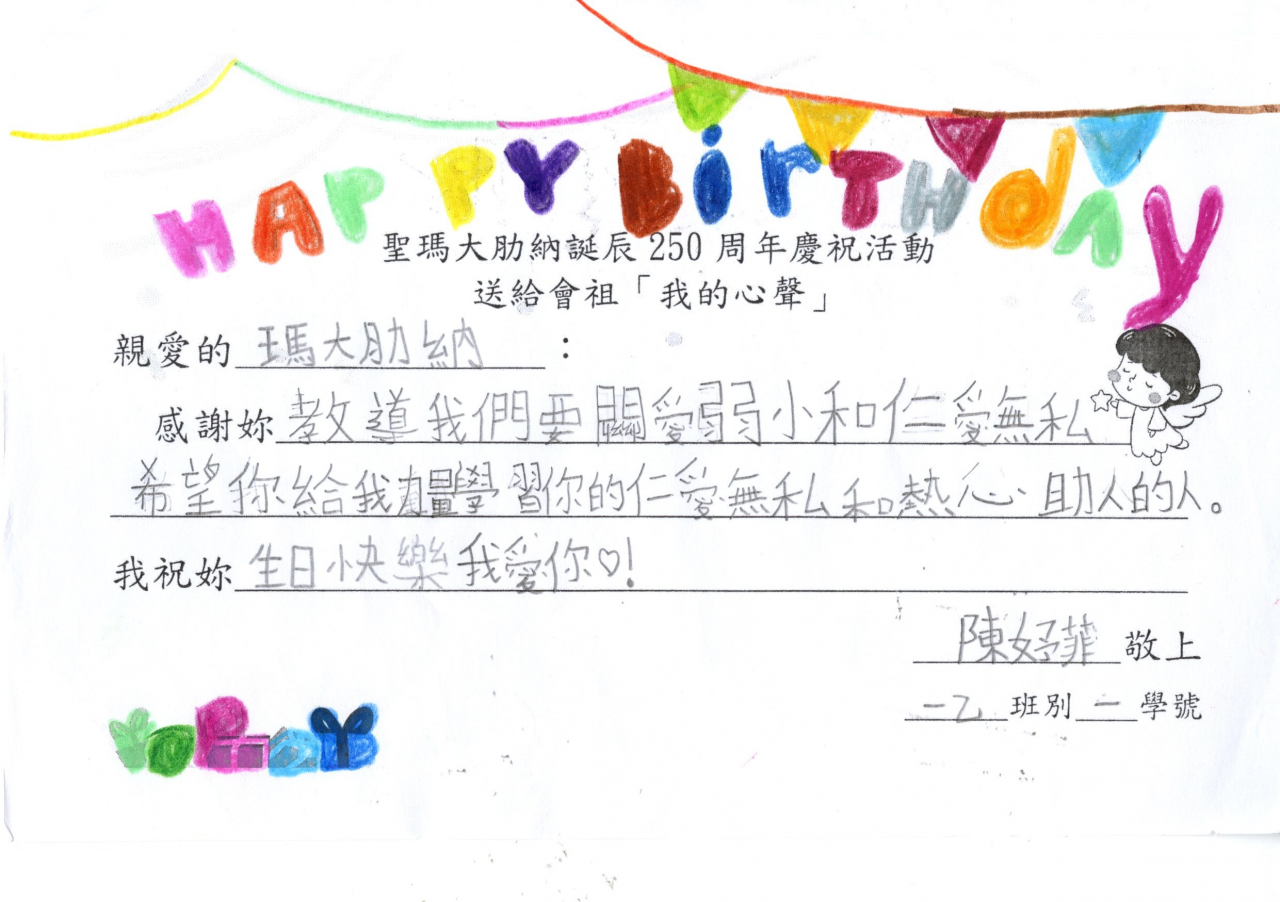 HAPPY BirTHdAy
聖瑪大肋納誕辰 250 周年慶祝活動
送給會祖「我的心聲」
親愛的 瑪大肋納 :
感謝妳 教導我們要關愛弱小和仁愛無私
希望你給我力量學習你的仁愛無私和熱心助人的人。
我祝妳 生日快樂我愛你♡!
陳妤菲 敬上
一乙 班別 一 學號